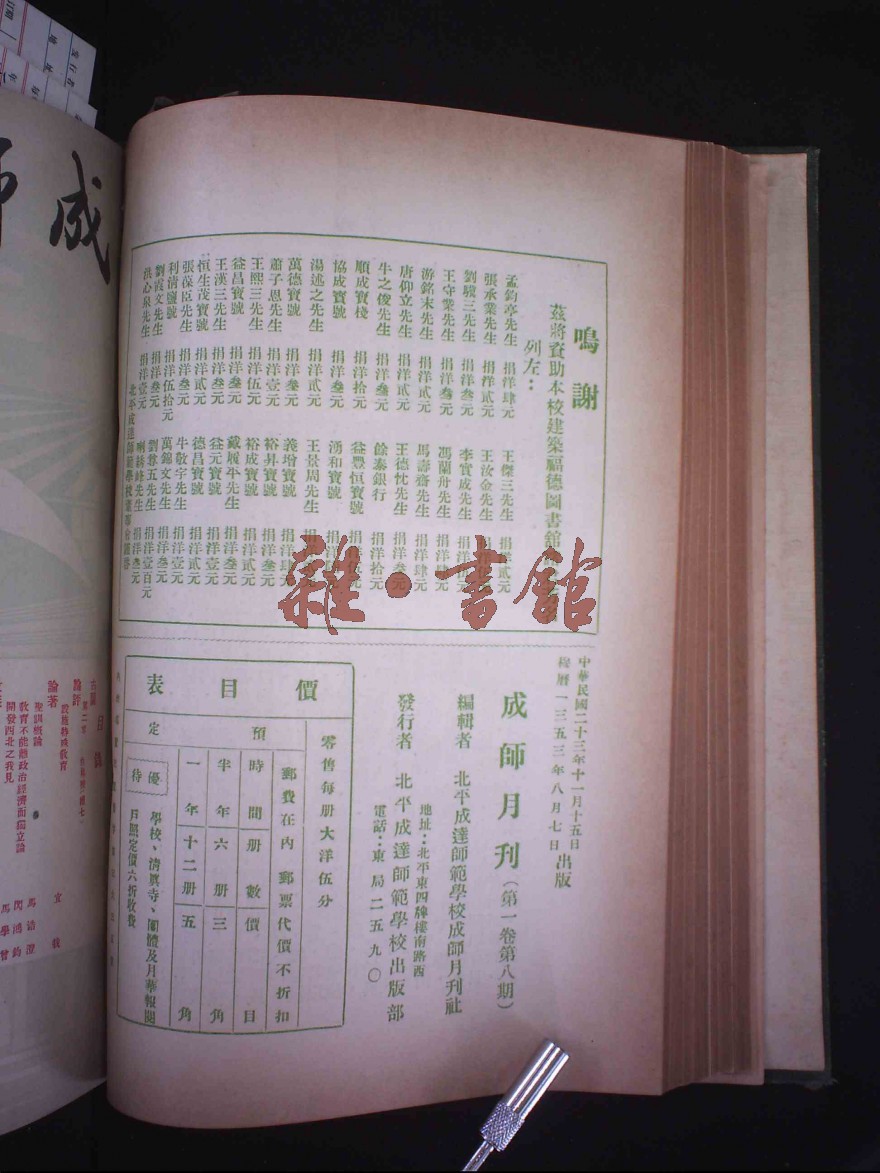 鳴謝
茲將資助本校建築福德圖書館
列左：
孟鈞亭先生 捐洋肆元 王傑三先生 捐洋貳元
張永業先生 捐洋貳元 王汝金先生
劉驥三先生 捐洋叁元 李實成先生
王守業先生 捐洋叁元 馮蘭舟先生 捐洋肆元
游銘末先生 捐洋貳元 馬壽齋先生 捐洋肆元
唐仰立先生 捐洋貳元 王德忱先生 捐洋叁元
牛之俊先生 捐洋叁元 餘泰銀行 捐洋拾元
順成寶棧 捐洋拾元 益豐恒寶號
協成寶號 捐洋叁元 湧和寶號
湯述之先生 捐洋貳元 王景周先生
萬德寶號 捐洋叁元 義增寶號 捐洋肆元
蕭子恩先生 捐洋壹元 裕昇寶號 捐洋叁元
王熙三先生 捐洋伍元 裕成寶號 捐洋貳元
益昌寶號 捐洋叁元 戴履平先生 捐洋叁元
王漢三先生 捐洋叁元 益元寶號 捐洋壹元
恒生茂寶號 捐洋貳元 德昌寶號 捐洋貳元
張葆臣先生 捐洋叁元 牛敬宇先生 捐洋壹元
利清鹽號 捐洋伍拾元 萬錦文先生 捐洋叁元
劉霞文先生 捐洋叁元 劉尊五先生 捐洋壹百元
洪心泉先生 捐洋壹元 先生 捐洋叁元
北平成達師範學校
中華民國二十三年十一月十五日
穆曆一三五三年八月七日 出版
成師月刊（第一卷第八期）
編輯者 北平成達師範學校成師月刊社
地址：北平東四牌樓南路西
發行者 北平成達師範學校出版部
電話：東局二五九〇
價目表
零售每册大洋伍分
預定
郵費在內 郵票代價不折扣
時間 册數 價目
半年 六册 三角
一年 十二册 五角
優待
學校、清真寺、團體及月華報閱
戶照定價六折收費
雜·書館
成師
目錄
論著
聖訓概論
教育不能離政治經濟而獨立論
開發西北之我見
馬浩澄
閃鴻鈞
馬學曾